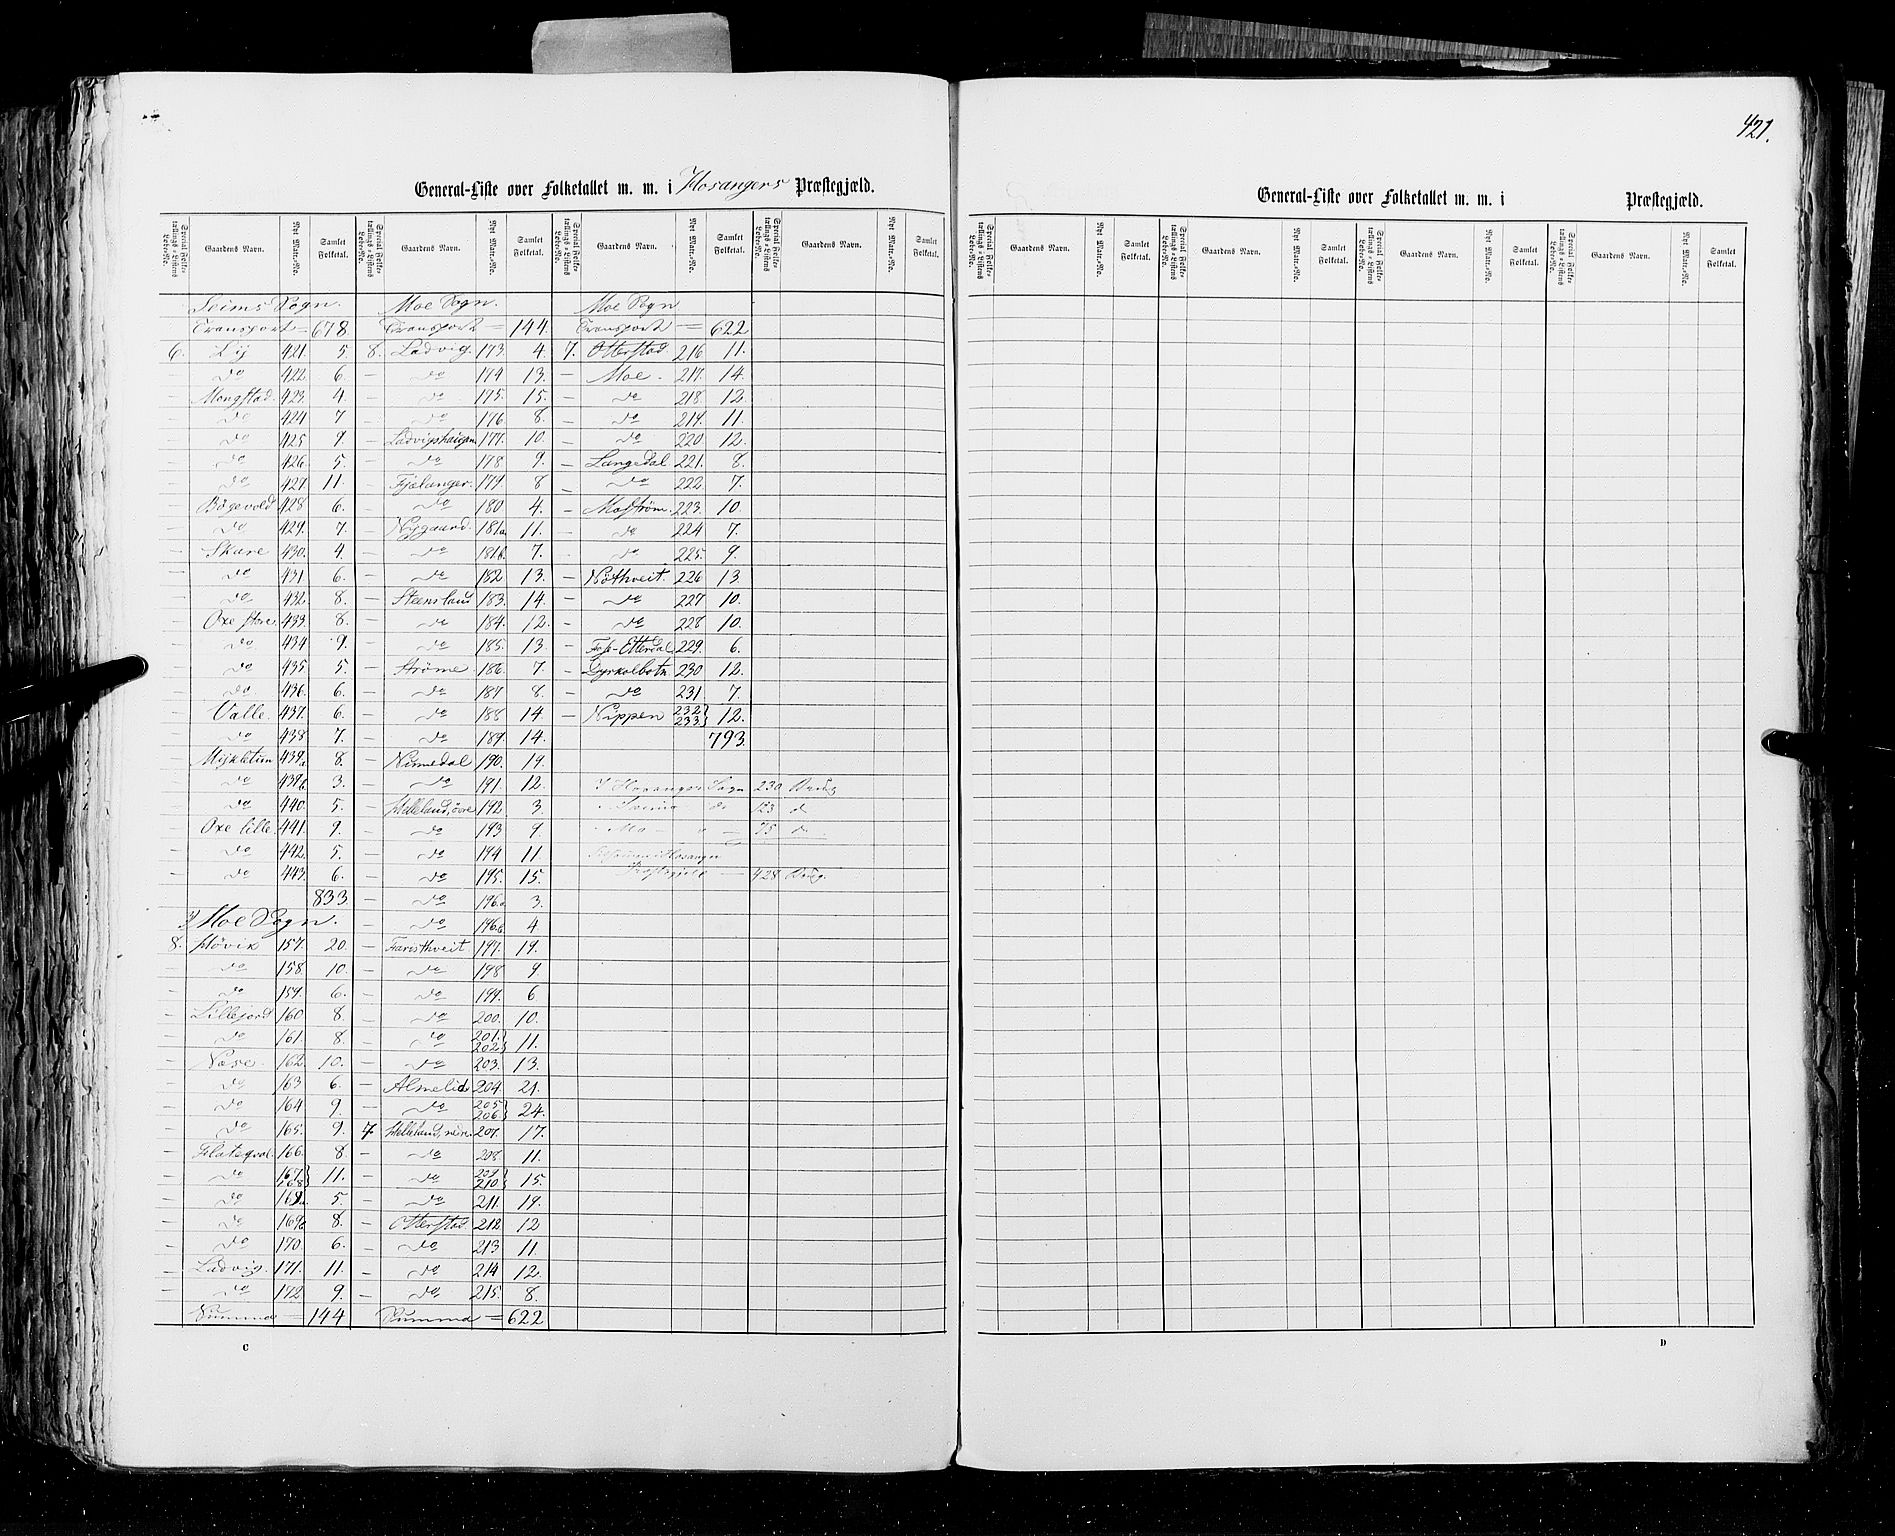 421.
General-Liste over Folketallet m. m. i Hosangers Præstegjæld.
Special Folketællings-Listens Løbe-No. Gaardens Navn. Nyt Matr.-No. Samlet Folketal. Special Folketællings-Listens Løbe-No. Gaardens Navn. Nyt Matr.-No. Samlet Folketal. Special Folketællings-Listens Løbe-No. Gaardens Navn. Nyt Matr.-No. Samlet Folketal. Special Folketællings-Listens Løbe-No. Gaardens Navn. Nyt Matr.-No. Samlet Folketal.
Seims Sogn.
Transport = 678.
6. Lij 421. 5.
— do 422. 6.
— Mongstad. 423. 4.
— do 424 7
— do 425 9.
— do 426. 5.
— do 427. 11.
— Bøgevold 428 6.
— do 429. 7.
— Skare 430. 4.
— do 431 6.
— do 432. 8.
— Oxe store 433. 8.
— do 434 9.
— do 435 5.
— do 436. 6.
— Valle. 437. 6.
— do 438 7.
— Mykletun 439a 8.
— do 439b 3.
— do 440. 5.
— Oxe lille. 441. 9.
— do 442. 5.
— do 443. 6.
833.
Moe Sogn.
8. Høvik 157. 20.
— do 158. 10.
— do 159. 6.
— Lillejord 160 8.
— do 161. 8.
— Næse. 162. 10.
— do 163 6.
— do 164 9.
— do 165. 9.
— Flateqval. 166. 8.
— do 167 168 } 11.
— do 169a 5
— do 169b 8.
— do 170 6.
— Ladvig. 171. 11.
— do 172 9.
Summa = 144
Moe Sogn.
Transport = 144.
8. Ladvig. 173. 4.
— do 174 13.
— do 175. 15.
— do 176. 8.
— Ladvigshaugen 177. 10.
— do 178 9.
— Fjelanger. 179. 8
— do 180 4.
— Nygaard. 181a. 11.
— do 181b. 7.
— do 182 13.
— Steensland 183. 14.
— do 184. 12.
— do 185. 13
— Strøme. 186. 7
— do 187 8.
— do 188 14
— do 189. 14.
— Nunnedal 190. 19.
— do 191. 12.
— Helleland, øvre 192. 3.
— do 193 9
— do 194 11
— do 195. 15.
— do 196a. 3.
— do 196b. 4
— Faristhveit. 197. 19.
— do 198 9.
— do 199. 6
— do 200. 10.
— do 201. 202 } 11.
— do 203. 13.
— Almelid 204. 21.
— do 205 206 } 24.
7. Helleland, nedre. 207. 17.
— do 208. 11.
— do 209 210 } 15.
— do 211. 19.
— Otterstad. 212. 12
— do 213 11.
— do 214 12.
— do 215. 8.
Summa = 622
Moe Sogn
Transport = 622
7. Otterstad. 216 11.
— Moe. 217. 14.
— do 218. 12.
— do 219. 11.
— do 220. 12.
— Langedal 221. 8.
— do 222. 7.
— Mostrøm. 223. 10.
— do 224 7.
— do 225. 9.
— Nøthveit. 226 13.
— do 227 10.
— do 228 10.
— Foss-Etterdal 229. 6.
— Dyrkolbotn. 230 12.
— do 231 7.
— Nippen 232 233 } 12.
793.
I Hosanger Sogn 230 Brug
" Seims do 123 d
" Mo — " — 75 d.
Hosanger
Præstegjeld — 428 Brug.
C
General-Liste over Folketallet m. m. i Præstegjæld.
Special Folketællings-Listens Løbe-No. Gaardens Navn. Nyt Matr.-No. Samlet Folketal. Special Folketællings-Listens Løbe-No. Gaardens Navn. Nyt Matr.-No. Samlet Folketal. Special Folketællings-Listens Løbe-No. Gaardens Navn. Nyt Matr.-No. Samlet Folketal. Special Folketællings-Listens Løbe-No. Gaardens Navn. Nyt Matr.-No. Samlet Folketal.
D